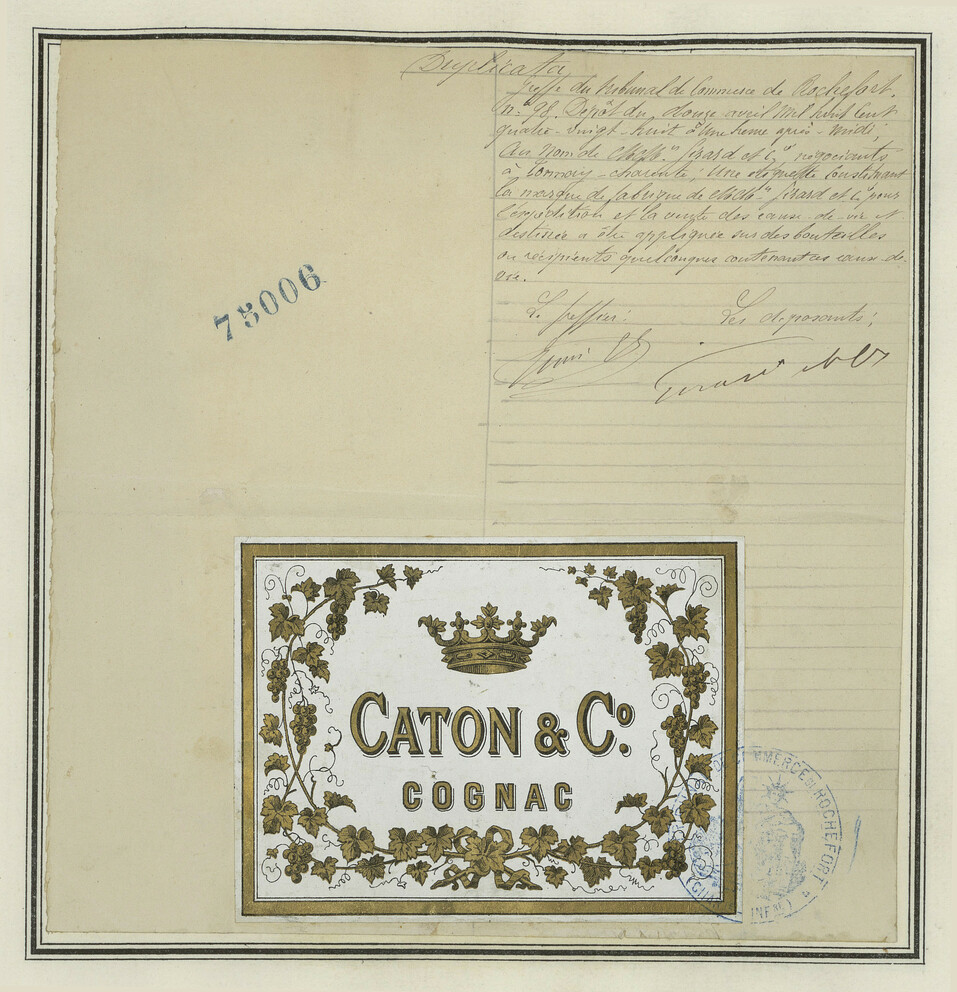 Duplicata
Greffe du Tribunal de Commerce de Rochefort.
N.° 98. Dépôt du douze avril mil huit cent
quatre-vingt-huit à une heure après-midi,
au nom de MM.rs Girard et Cie, négociants
à Tonnay-Charente, une étiquette constituant
la marque de fabrique de MM.rs Girard et Cie pour
l'expédition et la vente des eaux-de-vie et
destinée à être appliquée sur des bouteilles
ou récipients quelconques contenant ces eaux-de-
vie.
Le Greffier:
Les déposants;
75006
CATON & Co.
COGNAC
DE COMMERCE DE ROCHEFORT
INFRE)